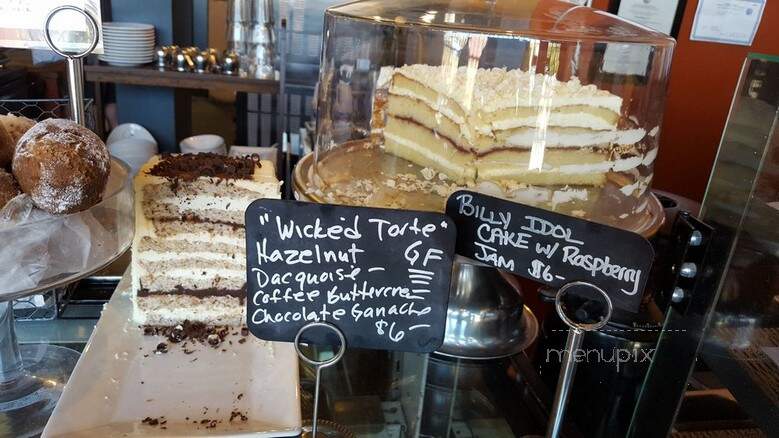 "Wicked Torte"
Hazelnut GF
Dacquoise –
Coffee Buttercrem
Chocolate Ganache
$6–
BILLY IDOL
CAKE W/ Raspberry
JAM $6–
menupix